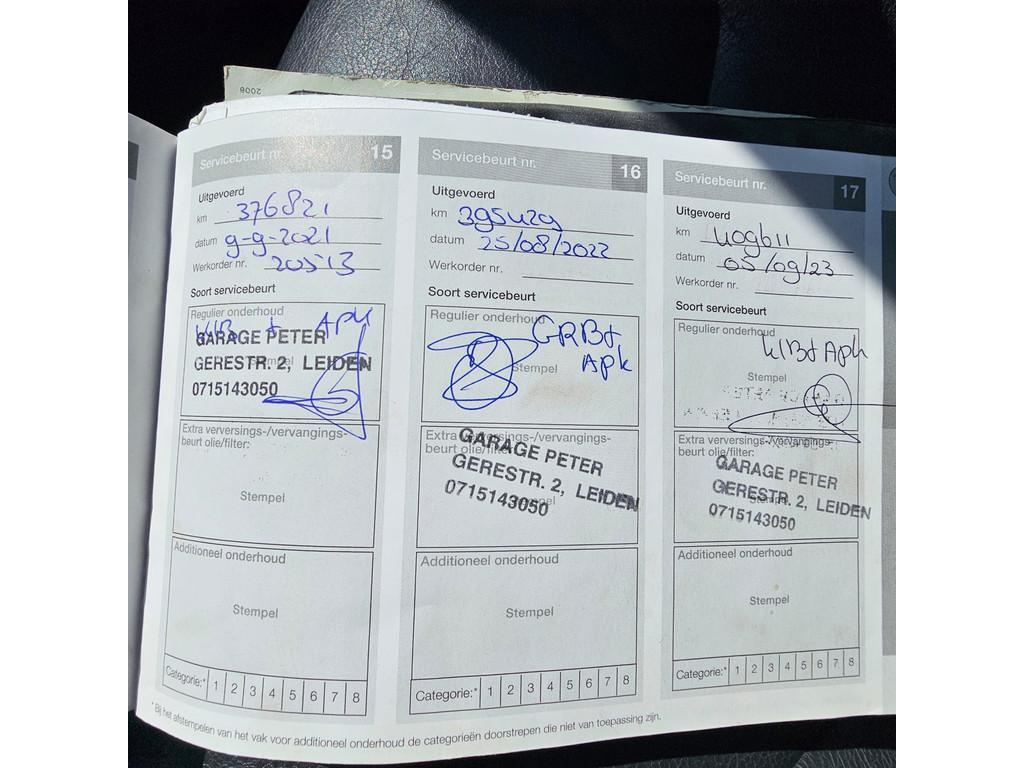 2006
Servicebeurt nr. 15
Uitgevoerd
km 376821
datum 9-9-2021
Werkorder nr. 20513
Soort servicebeurt
Regulier onderhoud
KlB + Apk
GARAGE PETER
GERESTR. 2, LEIDEN
0715143050
Extra verversings-/vervangings-
beurt olie/filter:
Stempel
Additioneel onderhoud
Stempel
Categorie:* 1 2 3 4 5 6 7 8
Servicebeurt nr. 16
Uitgevoerd
km 395429
datum 25/08/2022
Werkorder nr.
Soort servicebeurt
Regulier onderhoud
GRB+
Apk
Stempel
Extra verversings-/vervangings-
beurt olie/filter:
GARAGE PETER
GERESTR. 2, LEIDEN
0715143050
Stempel
Additioneel onderhoud
Stempel
Categorie:* 1 2 3 4 5 6 7 8
Servicebeurt nr. 17
Uitgevoerd
km 409611
datum 05/09/23
Werkorder nr.
Soort servicebeurt
Regulier onderhoud
KlB+ Apk
Stempel
Extra verversings-/vervangings-
beurt olie/filter:
GARAGE PETER
GERESTR. 2, LEIDEN
0715143050
Stempel
Additioneel onderhoud
Stempel
Categorie:* 1 2 3 4 5 6 7 8
* Bij het afstempelen van het vak voor additioneel onderhoud de categorieën doorstrepen die niet van toepassing zijn.